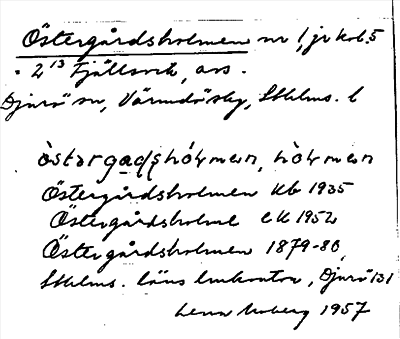 Östergårdsholmen nr 1, jr kol. 5
- 2 13 Fjällsvik, avs.
Djurö sn, Värmdö skg, Sthlms. l
östərgaḍshóɫmən, hòɫmən
Östergårdsholmen Kb 1935
Östergårdsholme EK 1952
Östergårdsholmen 1879-80,
Sthlms. läns landkontor, Djurö 131
Moberg 1957